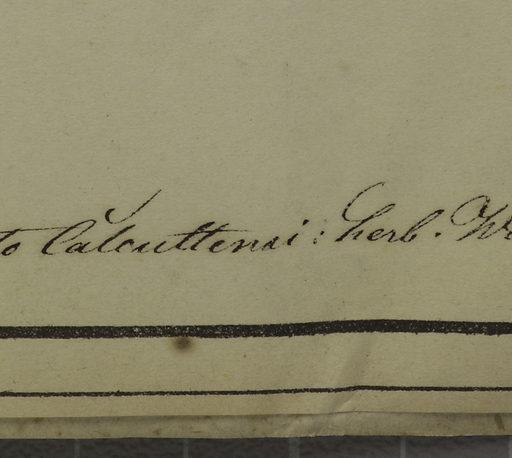 to Calcuttensi : herb. W